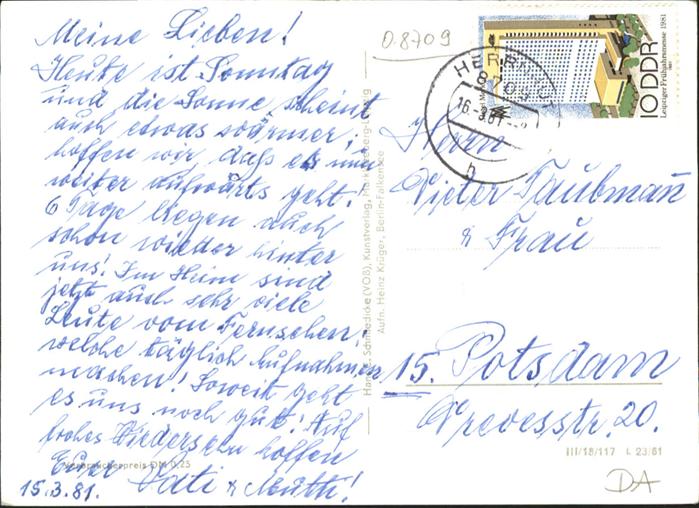 Meine Lieben!
Heute ist Sonntag
und die Sonne scheint
auch etwas wärmer,
hoffen wir, daß es nun
weiter aufwärts geht!
6 Tage liegen auch
schon wieder hinter
uns! Im Heim sind
jetzt auch sehr viele
Leute vom Fernsehen!
welche täglich Aufnahmen
machen! Soweit geht
es uns noch gut! Auf
frohes Wiedersehn hoffen
Eure Vati & Mutti!
15.3.81.
Verbraucherpreis DM 0,25
0.8709
Aufn. Heinz Krüger, Berlin-Falkensee
10 DDR
Leipziger Frühjahrsmesse 1981
HERRNHUT
Herrn
Dieter Taubmann
& Frau
15. Potsdam
Drevesstr. 20.
III/18/117
DA